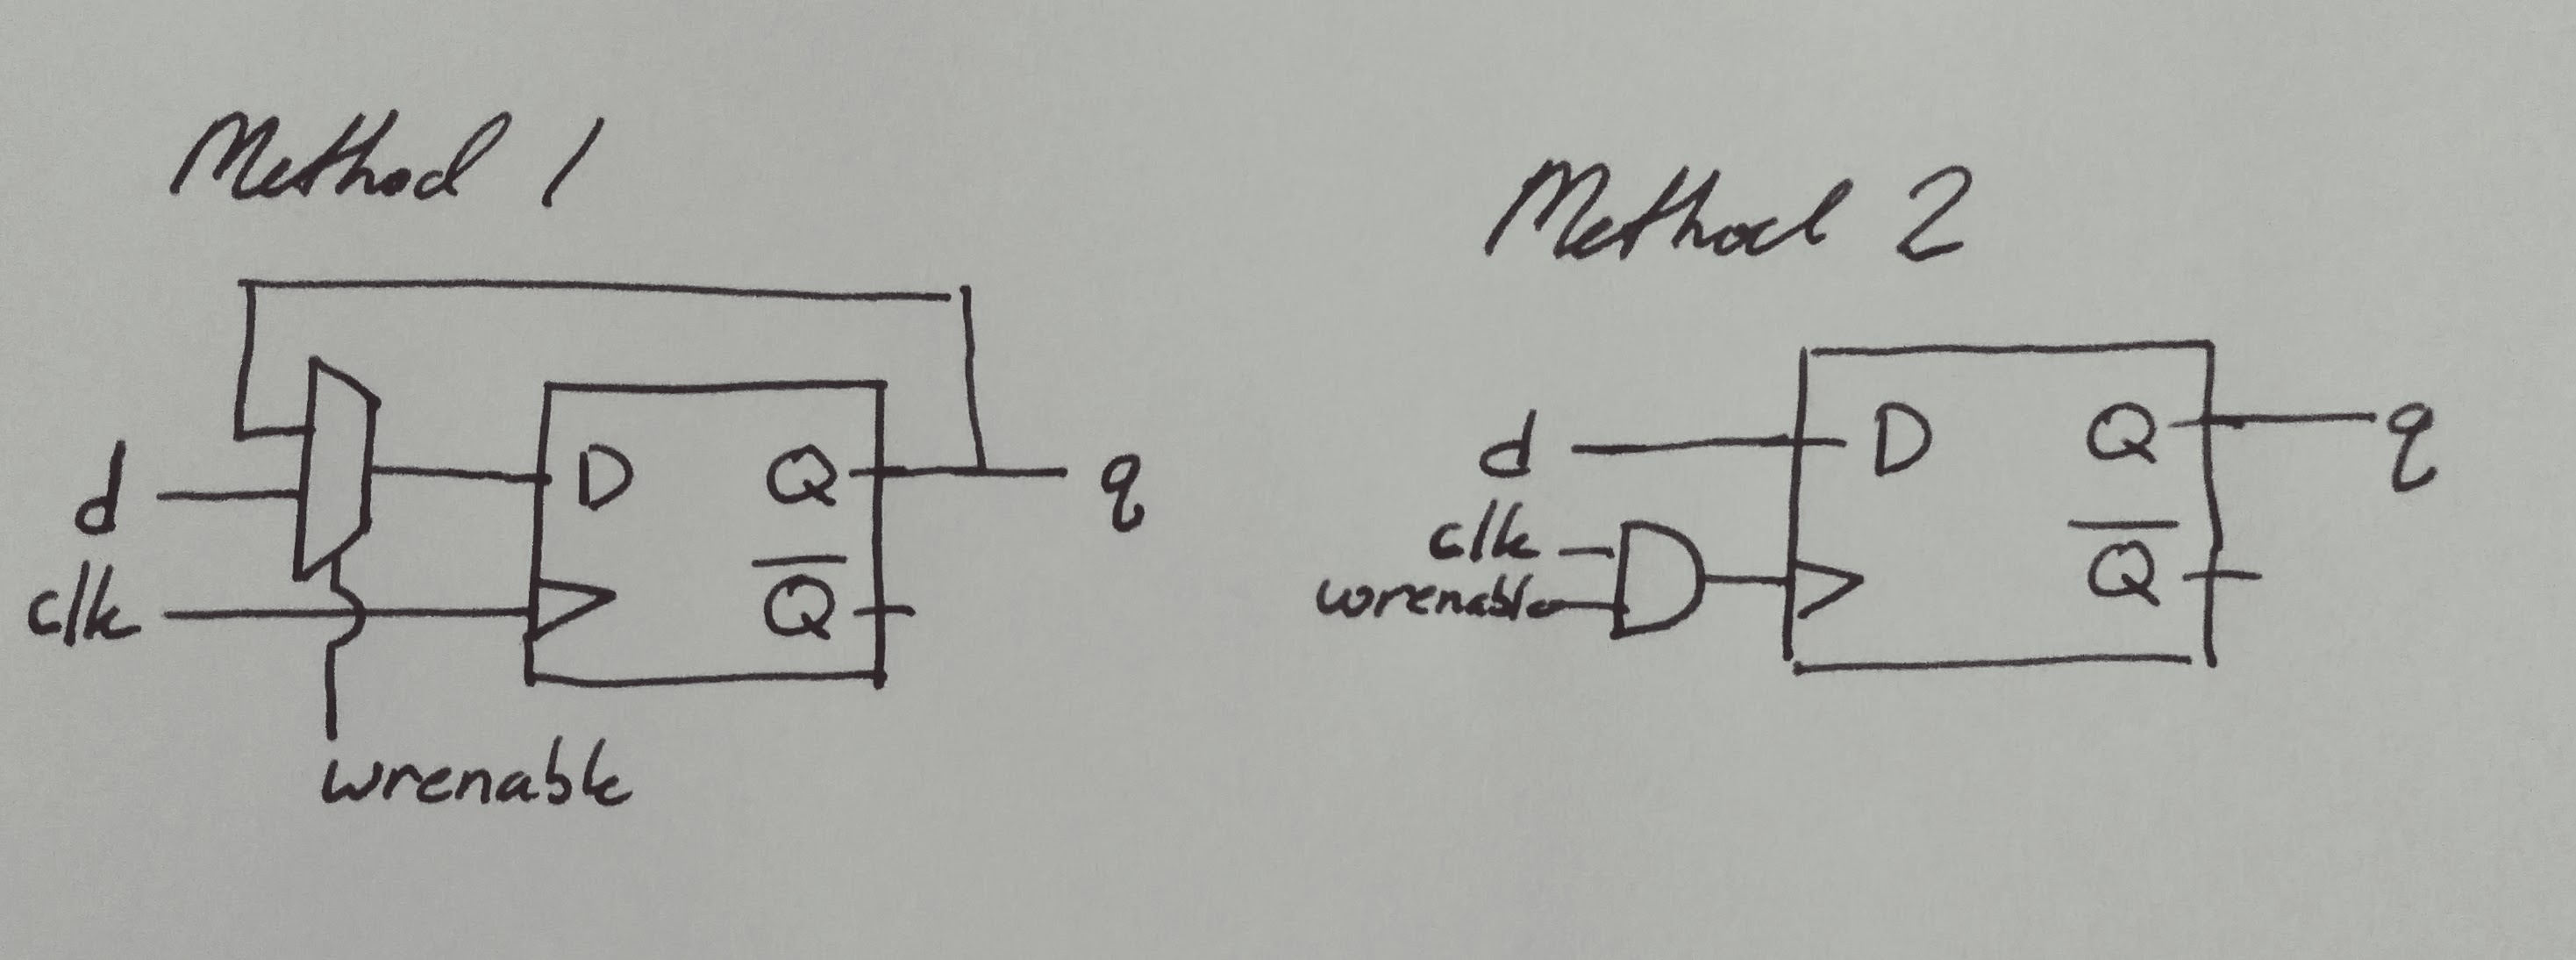 Method 1
d
clk
D
Q
Q
q
wrenable
Method 2
d
clk
wrenable
D
Q
Q
q